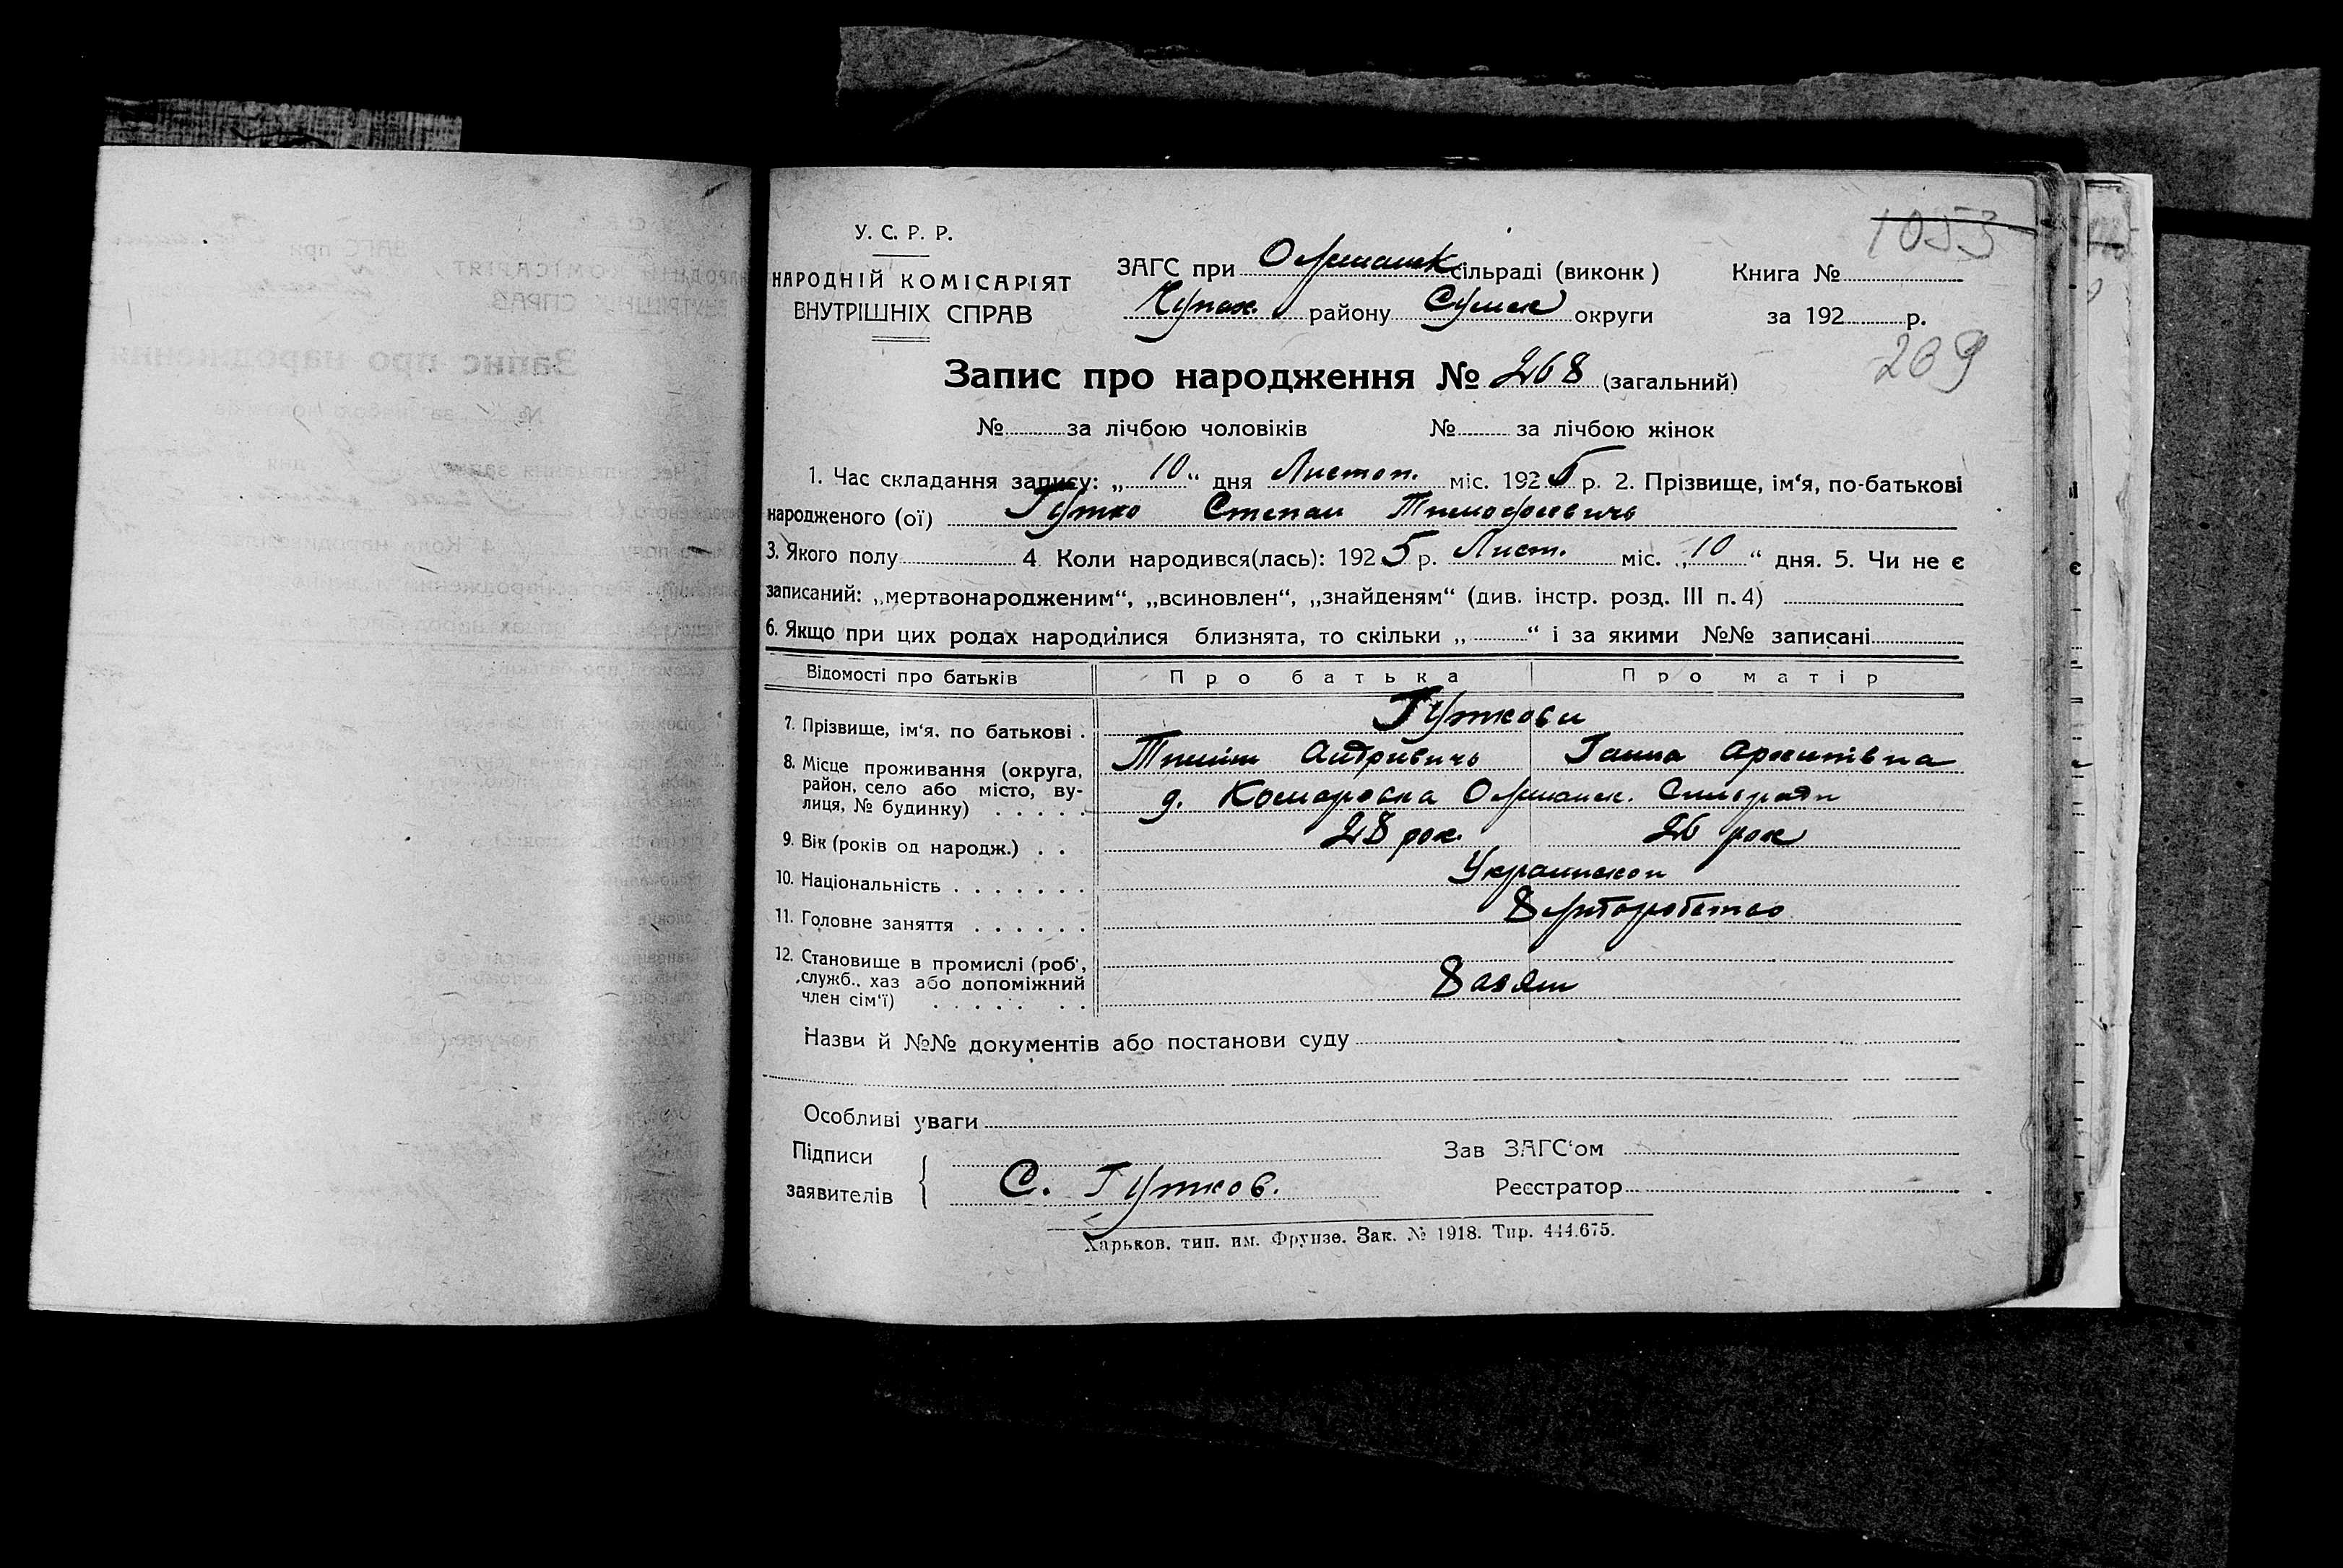 1053
У. С. Р. Р.
НАРОДНІЙ КОМІСАРІЯТ
ВНУТРІШНІХ СПРАВ
ЗАГС при сільраді (виконк)
Книга №
Чупах. району Сумск округи
за 192 р.
209
Запис про народження № 268 (загальний)
№ за лічбою чоловіків № за лічбою жінок
1. Час складання запису: „ 10 “ дня Листоп. міс. 1925 р. 2. Прізвище, ім‘я, по-батькові
народженого (ої) Гутко Степан Тимофеевичь
3. Якого полу 4. Коли народився(лась): 1925 р. Лист. міс. „ 10 “ дня. 5. Чи не є
записаний: „мертвонародженим“, „всиновлен“, „знайденям“ (див. інстр. розд. III п. 4)
6. Якщо при цих родах народилися близнята, то скільки „ “ і за якими №№ записані
Відомості про батьків Про батька Про матір
7. Прізвище, ім‘я, по батькові . Гуткови
Андривичь Ганна Архипівна
8. Місце проживання (округа,
район, село або місто, ву-
лиця, № будинку) . . . . .
д. Комаровка
9. Вік (років од народж.) . . 28 рок. 26 рок
10. Національність . . . . . . . Украинской
11. Головне заняття . . . . . .
12. Становище в промислі (роб.,
служб., хаз або допоміжний
член сім‘ї) . . . . . . .
Назви й №№ документів або постанови суду
Особливі уваги
Підписи
заявителів
С. Гутков.
Зав ЗАГС‘ом
Реєстратор
Харьков. тип. им. Фрунзе. Зак. № 1918. Тир. 444.675.